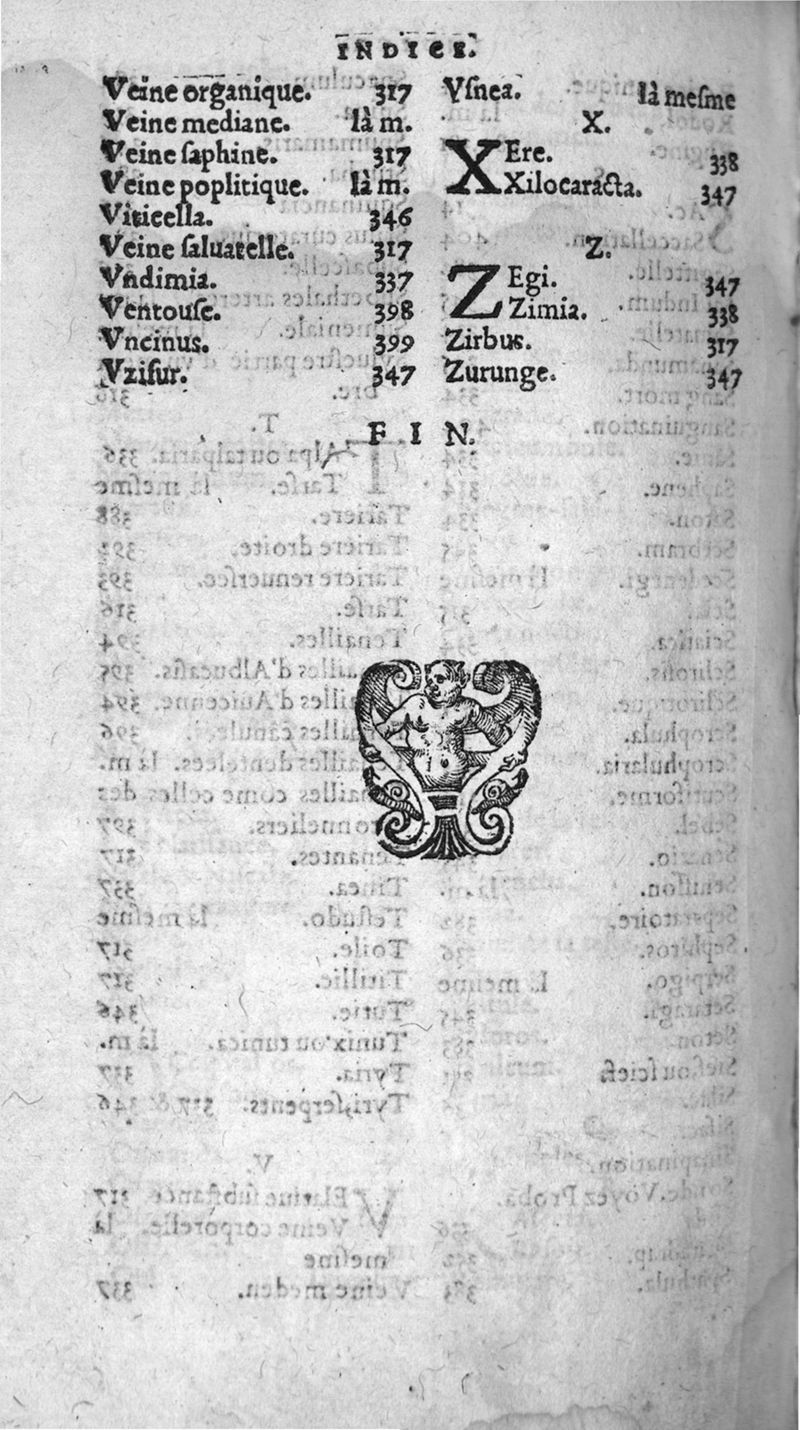 INDICE.
Veine organique. 317
Veine mediane. là m.
Veine ſaphine. 317
Veine poplitique. là m.
Viticella. 346
Veine ſaluatelle. 317
Vndimia. 337
Ventouſe. 398
Vncinus. 399
Vziſur. 347
Vſnea. là meſme
X.
XEre. 338
Xilocaracta. 347
Z.
ZEgi. 347
Zimia. 338
Zirbus. 317
Zurunge. 347
FIN.